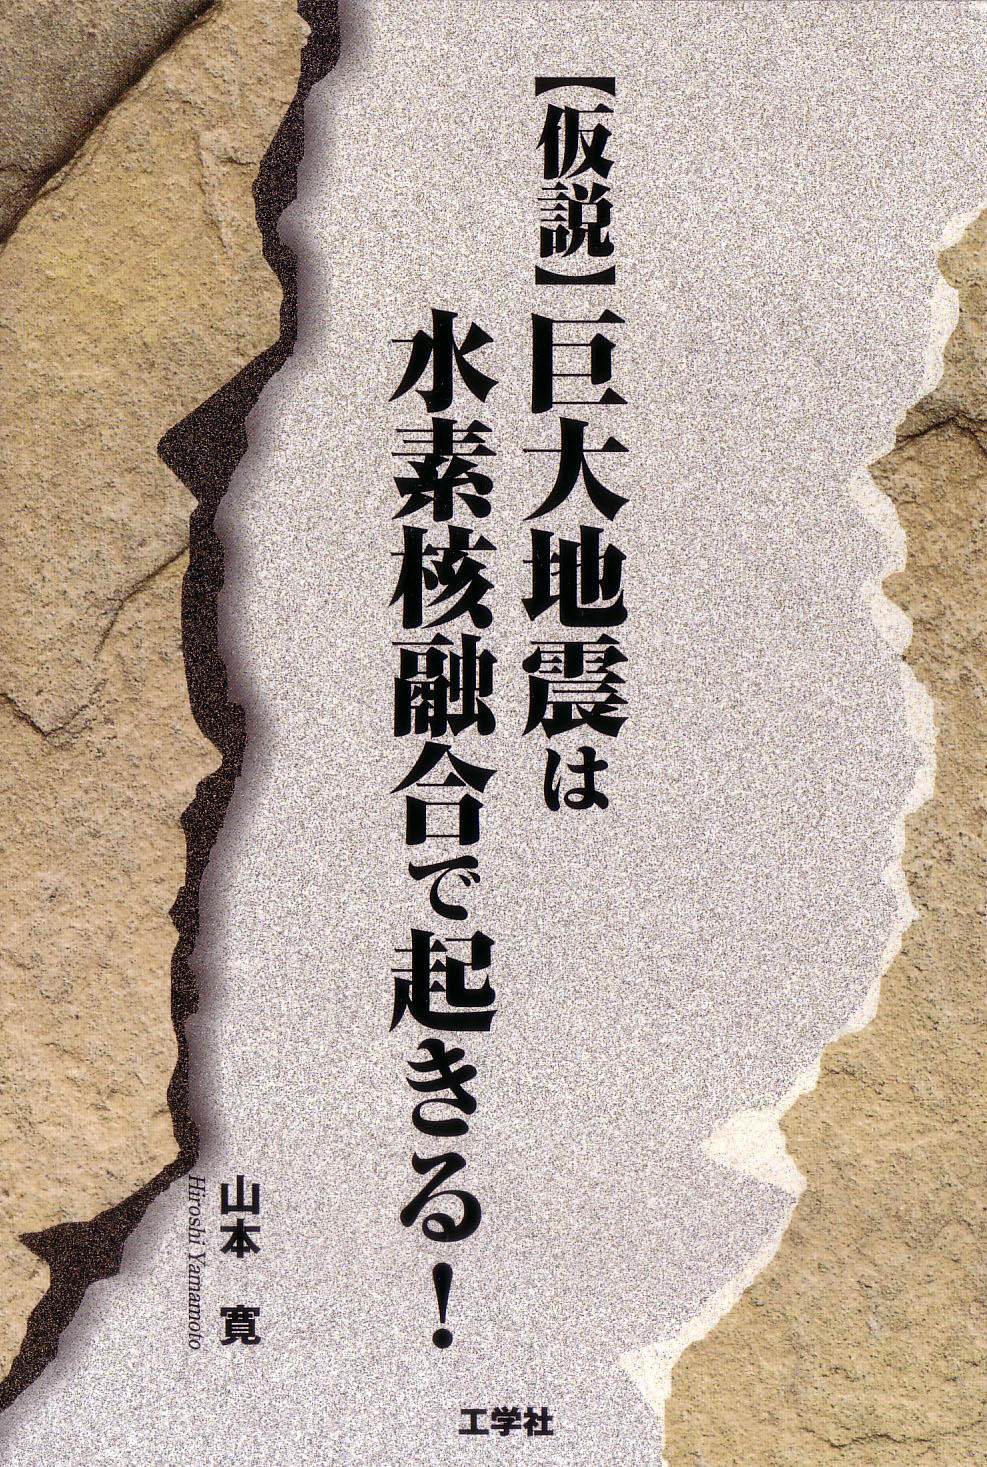 【仮説】巨大地震は
水素核融合で起きる！
山本 寛
Hiroshi Yamamoto
工学社